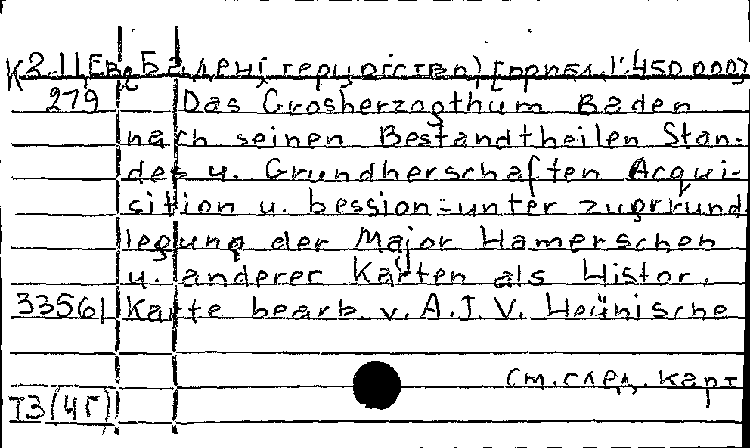 К2.II Евр Баден (герцогство) [прибл. 1:450 000]
279 Das Grosherzogthum Baden
nach seinen Bestandtheilen Stan-
des u. Grundherschaften Acqui-
sition u. bession-unter zugrkund
legung der Major Hamerschen
u. anderer Karten als Histor.
33561 Karte bearb. v. A.J.V. Heünische
См. след. карт
Т3(4Г)